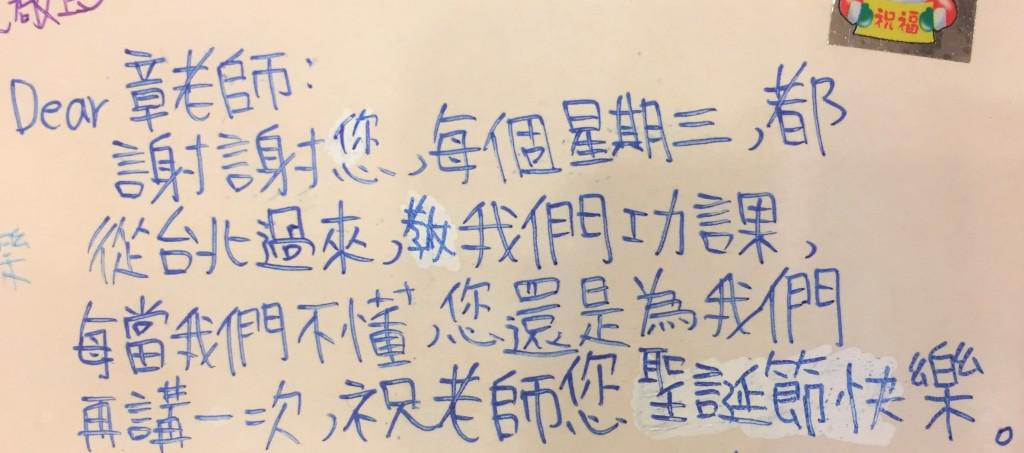 敬上
祝福
Dear 章老師:
謝謝您,每個星期三,都
從台北過來,教我們功課,
每當我們不懂,您還是為我們
再講一次,祝老師您聖誕節快樂。